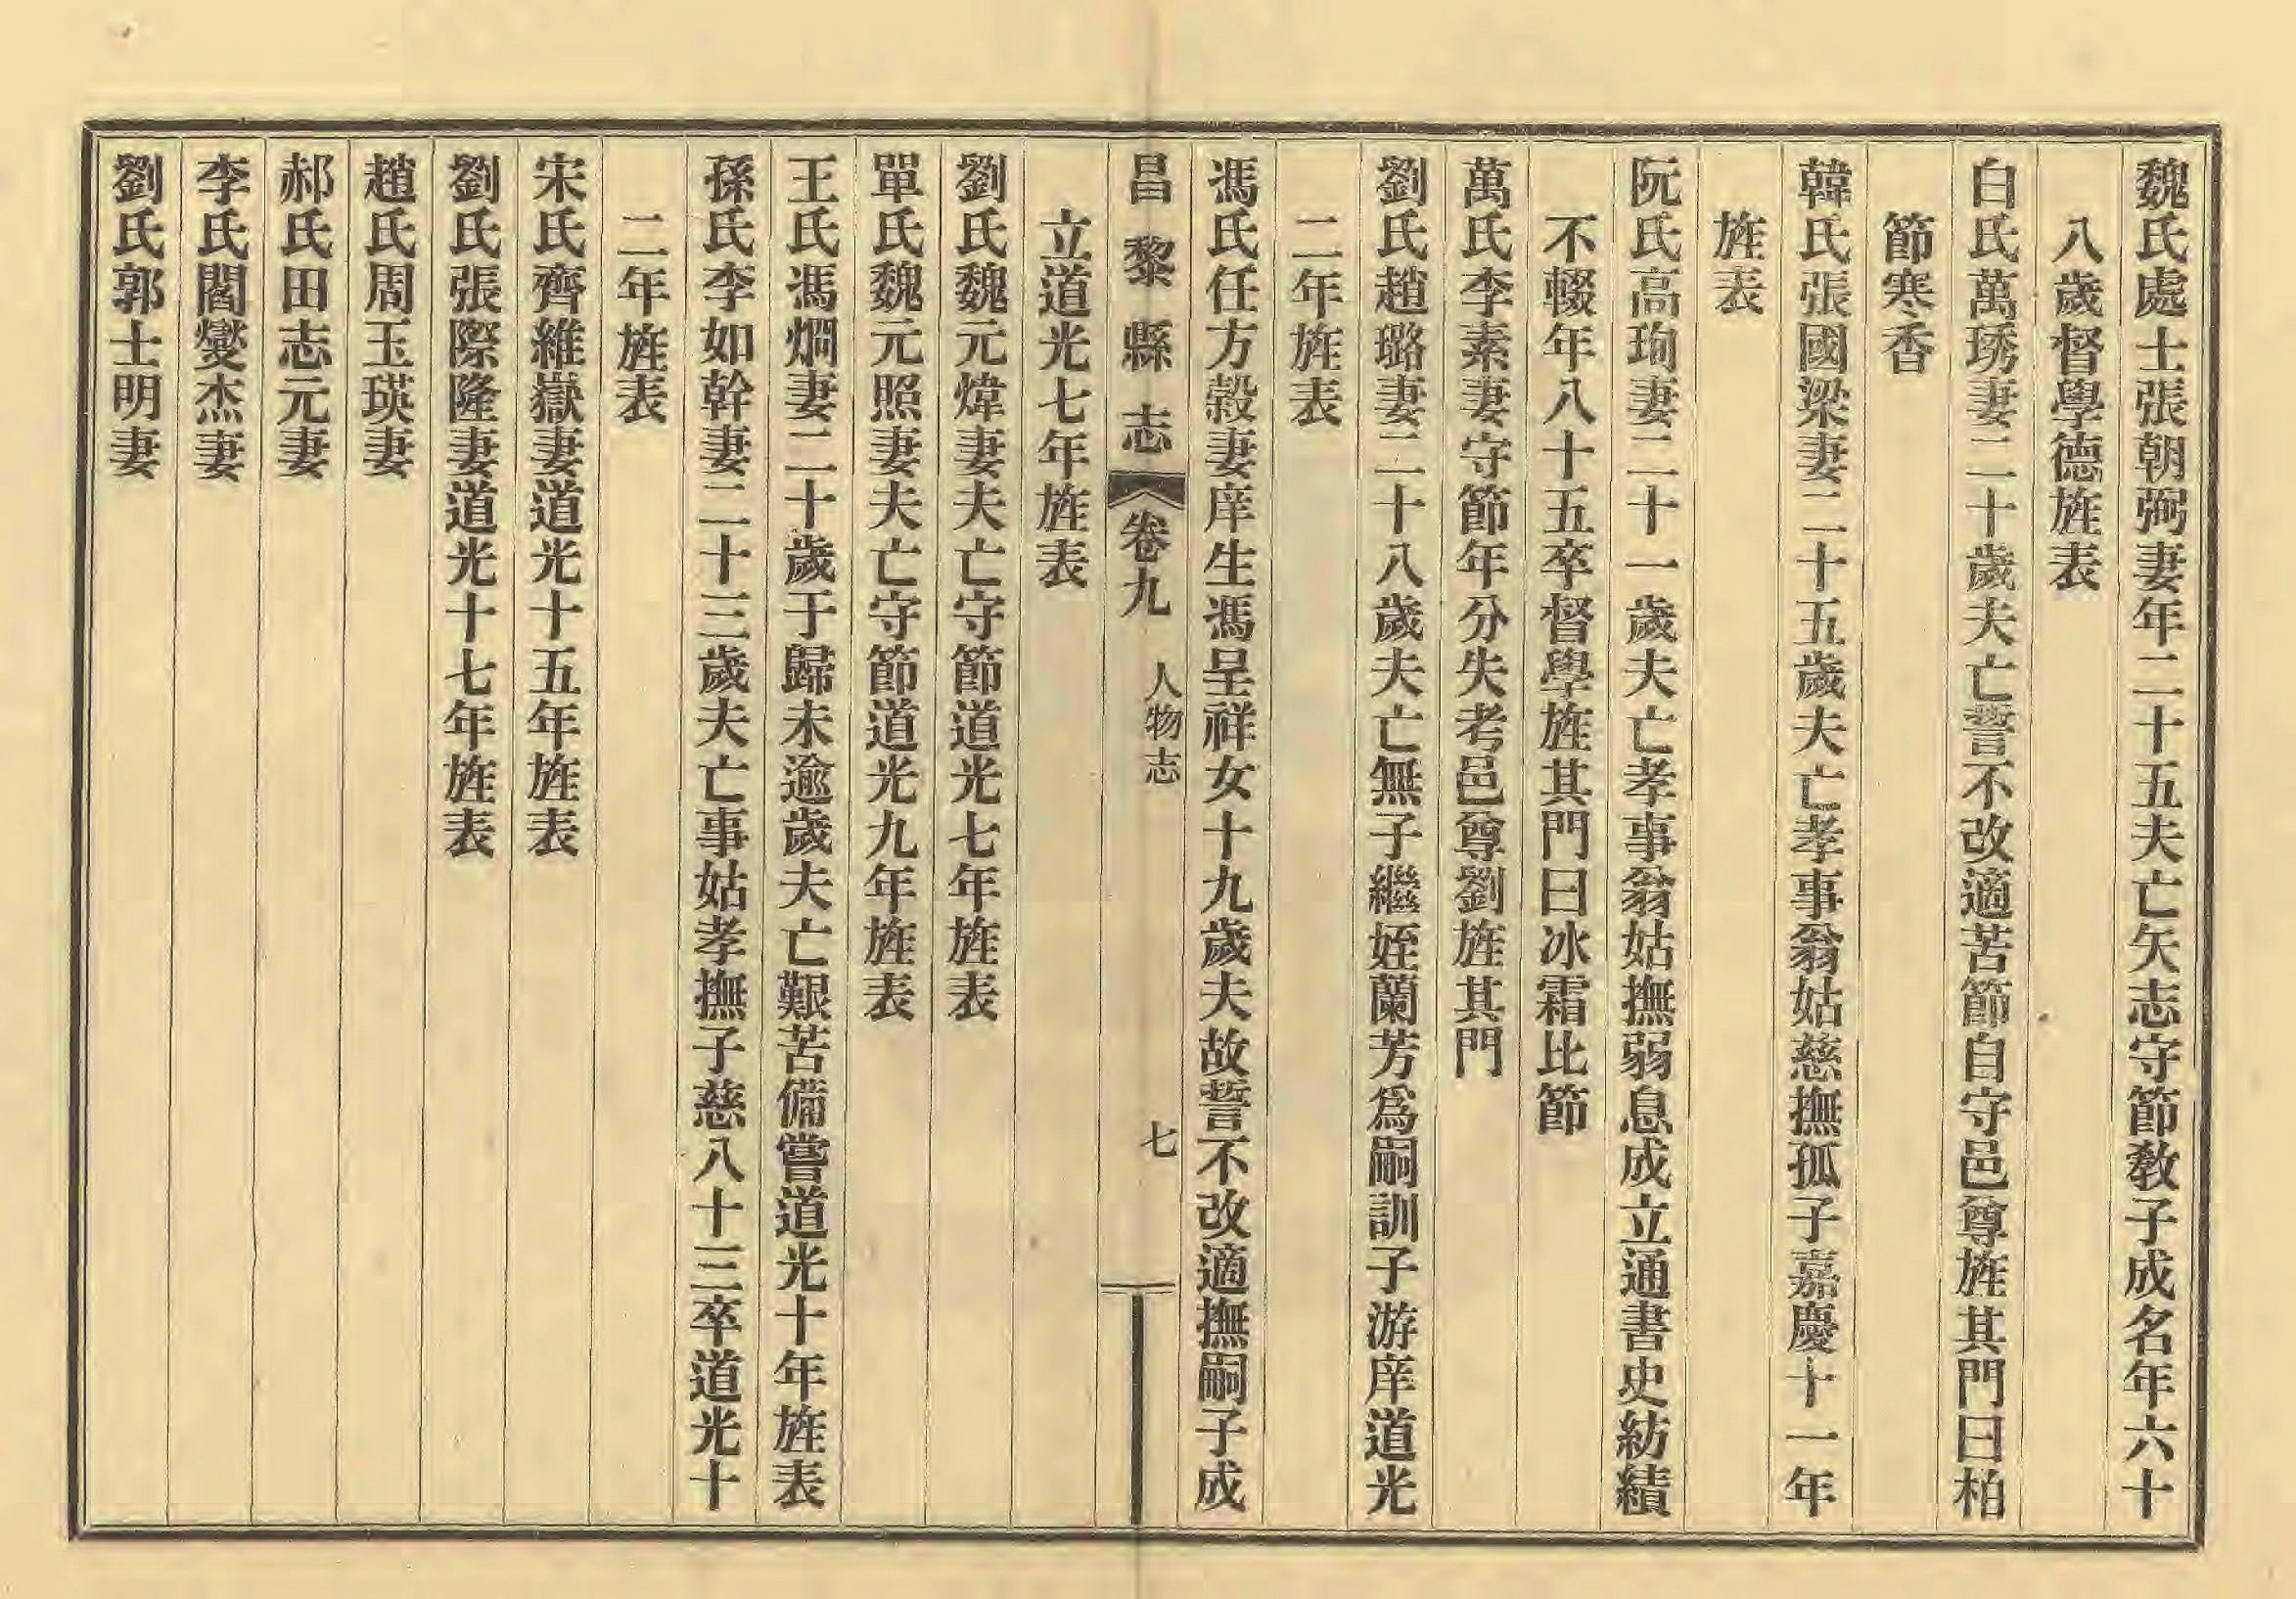 魏氏處士張朝弼妻年二十五夫亡矢志守節敎子成名年六十
八歲督學德旌表
白氏萬琇妻二十歲夫亡誓不改適苦節自守邑尊旌其門曰柏
節寒香
韓氏張國梁妻二十五歲夫亡孝事翁姑慈撫孤子嘉慶十一年
旌表
阮氏高珣妻二十一歲夫亡孝事翁姑撫弱息成立通書史紡績
不輟年八十五卒督學旌其門曰冰霜比節
萬氏李素妻守節年分失考邑尊劉旌其門
劉氏趙璐妻二十八歲夫亡無子繼姪蘭芳爲嗣訓子游庠道光
二年旌表
馮氏任方榖妻庠生馮呈祥女十九歲夫故誓不改適撫嗣子成
昌黎縣志 卷九 人物志 七
立道光七年旌表
劉氏魏元煒妻夫亡守節道光七年旌表
單氏魏元照妻夫亡守節道光九年旌表
王氏馮烱妻二十歲于歸未逾歲夫亡艱苦備嘗道光十年旌表
孫氏李如幹妻二十三歲夫亡事姑孝撫子慈八十三卒道光十
二年旌表
宋氏齊維嶽妻道光十五年旌表
劉氏張際隆妻道光十七年旌表
趙氏周玉瑛妻
郝氏田志元妻
李氏閻燮杰妻
劉氏郭士明妻